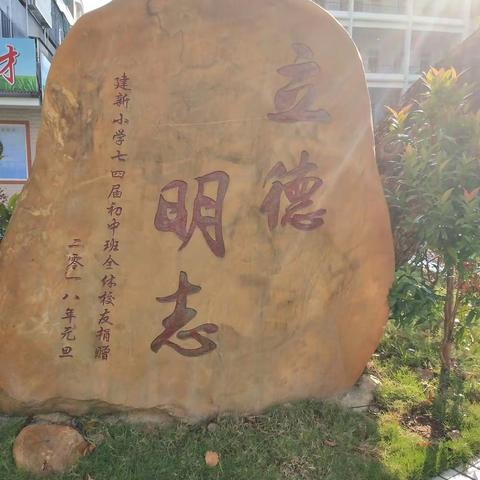 立德
明志
建新小学七四届初中班全体校友捐赠
二零一八年元旦
才